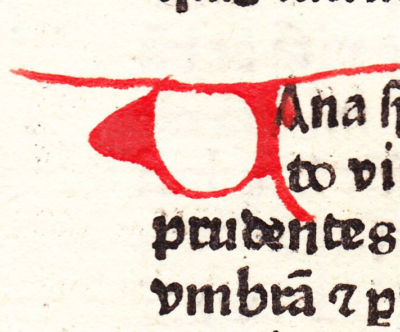 VAna
to vi
prudentes
vmbrā ⁊ p